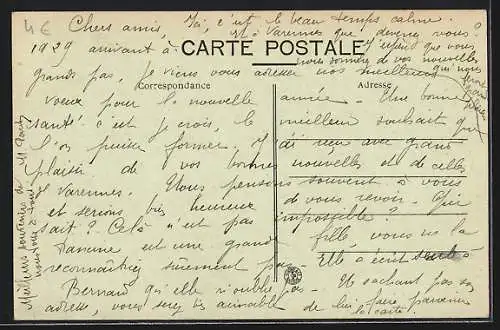 4 €
Chers amis, Ici, c'est le beau temps calme.
Et à Varennes que devenez-vous?
J'espère que vous
nous donnerez de vos nouvelles
qui nous
feront
plaisir
1929 arrivant à
CARTE POSTALE
grands pas, je viens vous adresser nos meilleurs
Correspondance
Adresse
voeux pour la nouvelle année. Une bonne
santé c'est je crois, le meilleur souhait que
l'on puisse former. J'ai lu avec grand
plaisir de vos bonnes nouvelles et de celles
de Varennes. Nous pensons souvent à vous
et serions bien heureux de vous revoir. Qui
sait? Cela n'est pas impossible?
est une grande fille, vous ne la
reconnaîtriez sûrement pas. Elle a écrit seule à
Bernard qu'elle n'oublie pas. Ne sachant pas son
adresse, vous serez bien aimable de lui faire parvenir
la carte.
Meilleurs souvenirs de
nous tous à tous